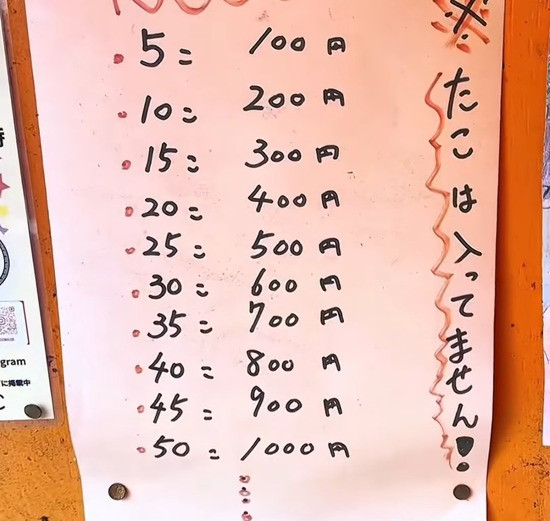 ・5コ 100円
・10コ 200円
・15コ 300円
・20コ 400円
・25コ 500円
・30コ 600円
・35コ 700円
・40コ 800円
・45コ 900円
・50コ 1000円
※たこは入ってません!
gram
に掲載中